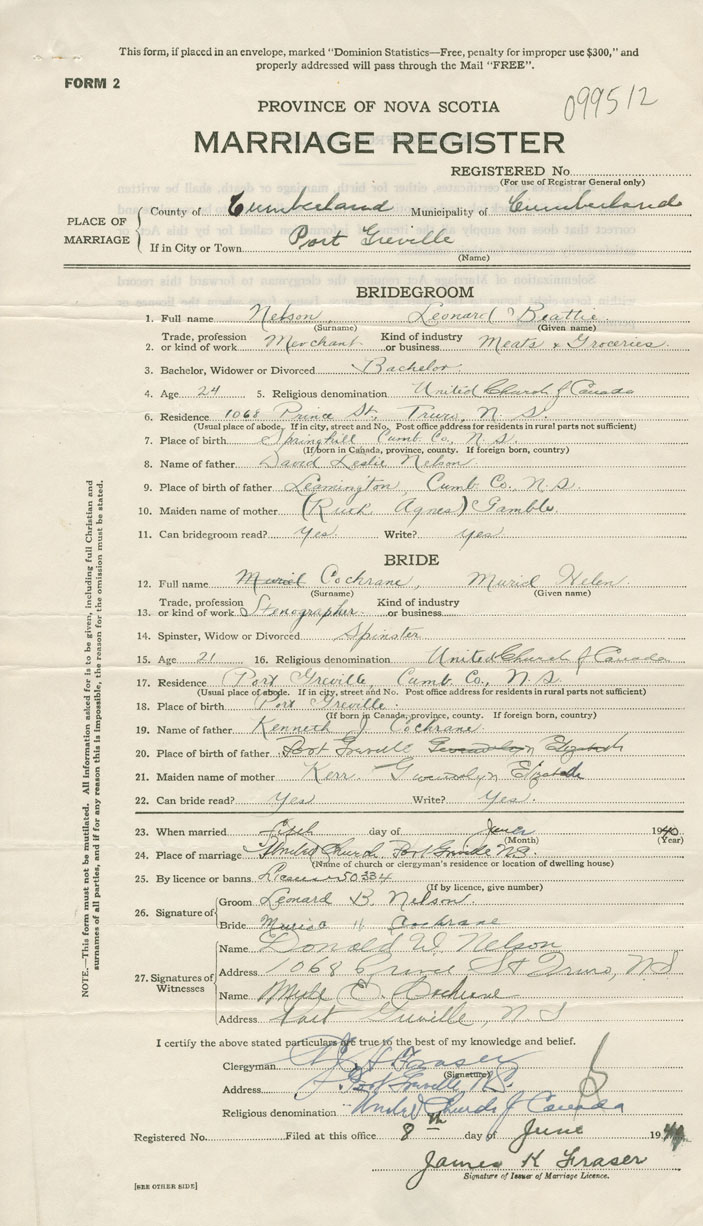 This form, if placed in an envelope, marked "Dominion Statistics—Free, penalty for improper use $300," and
properly addressed will pass through the Mail "FREE".
FORM 2
099512
PROVINCE OF NOVA SCOTIA
MARRIAGE REGISTER
REGISTERED No.
(For use of Registrar General only)
PLACE OF MARRIAGE
County of Cumberland Municipality of Cumberland
If in City or Town Port Greville
(Name)
BRIDEGROOM
1. Full name Nelson, Leonard Beattie
(Surname) (Given name)
2. Trade, profession or kind of work Merchant Kind of industry or business Meats & Groceries
3. Bachelor, Widower or Divorced Bachelor
4. Age 24 5. Religious denomination United Church of Canada
6. Residence 1068 Prince St., Truro, N.S.
(Usual place of abode. If in city, street and No. Post office address for residents in rural parts not sufficient)
7. Place of birth Springhill Cumb. Co., N.S.
(If born in Canada, province, county. If foreign born, country)
8. Name of father David Leslie Nelson
9. Place of birth of father Leamington, Cumb. Co., N.S.
10. Maiden name of mother (Ruth Agnes) Gamble
11. Can bridegroom read? Yes Write? yes
BRIDE
12. Full name Muriel Cochrane, Muriel Helen
(Surname) (Given name)
13. Trade, profession or kind of work Stenographer Kind of industry or business
14. Spinster, Widow or Divorced Spinster
15. Age 21 16. Religious denomination United Church of Canada
17. Residence Port Greville, Cumb. Co., N.S.
(Usual place of abode. If in city, street and No. Post office address for residents in rural parts not sufficient)
18. Place of birth Port Greville
(If born in Canada, province, county. If foreign born, country)
19. Name of father Kenneth J Cochrane
20. Place of birth of father Port Greville Gwendolyn Elizabeth
21. Maiden name of mother Kerr Gwendolyn Elizabeth
22. Can bride read? Yes Write? Yes.
23. When married day of June 1940
(Month) (Year)
24. Place of marriage United Church Port Greville N.S.
(Name of church or clergyman's residence or location of dwelling house)
25. By licence or banns License 50334
(If by licence, give number)
26. Signature of
Groom Leonard B. Nelson
Bride Muriel H Cochrane
27. Signatures of Witnesses
Name Donald W. Nelson
Address 1068 Prince St Truro, NS
Name E. Cochrane
Address Port Greville, N.S
I certify the above stated particulars are true to the best of my knowledge and belief.
Clergyman Fraser
(Signature)
Address Port Greville N.S.
Religious denomination United Church of Canada
Registered No. Filed at this office 8th day of June 19
James K Fraser
Signature of Issuer of Marriage Licence.
[SEE OTHER SIDE]
NOTE.—This form must not be mutilated. All information asked for is to be given, including full Christian and
surnames of all parties, and if for any reason this is impossible, the reason for the omission must be stated.